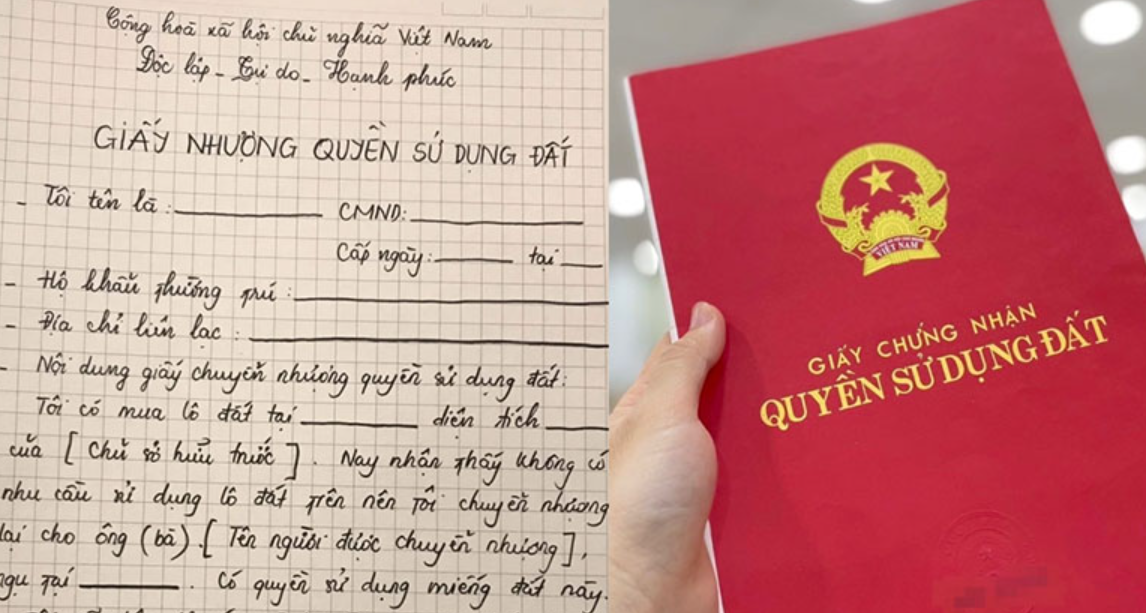 Cộng hoà xã hội chủ nghĩa Việt Nam
Độc lập - Tự do - Hạnh phúc
GIẤY NHƯỢNG QUYỀN SỬ DỤNG ĐẤT
- Tôi tên là : CMND:
Cấp ngày: tại
- Hộ khẩu thường trú :
- Địa chỉ liên lạc :
- Nội dung giấy chuyển nhượng quyền sử dụng đất:
Tôi có mua lô đất tại diện tích
của [ Chủ sở hữu trước ]. Nay nhận thấy không có
nhu cầu sử dụng lô đất trên nên tôi chuyển nhượng
lại cho ông (bà) [ Tên người được chuyển nhượng ],
ngụ tại . Có quyền sử dụng miếng đất này.
VIỆT NAM
GIẤY CHỨNG NHẬN
QUYỀN SỬ DỤNG ĐẤT